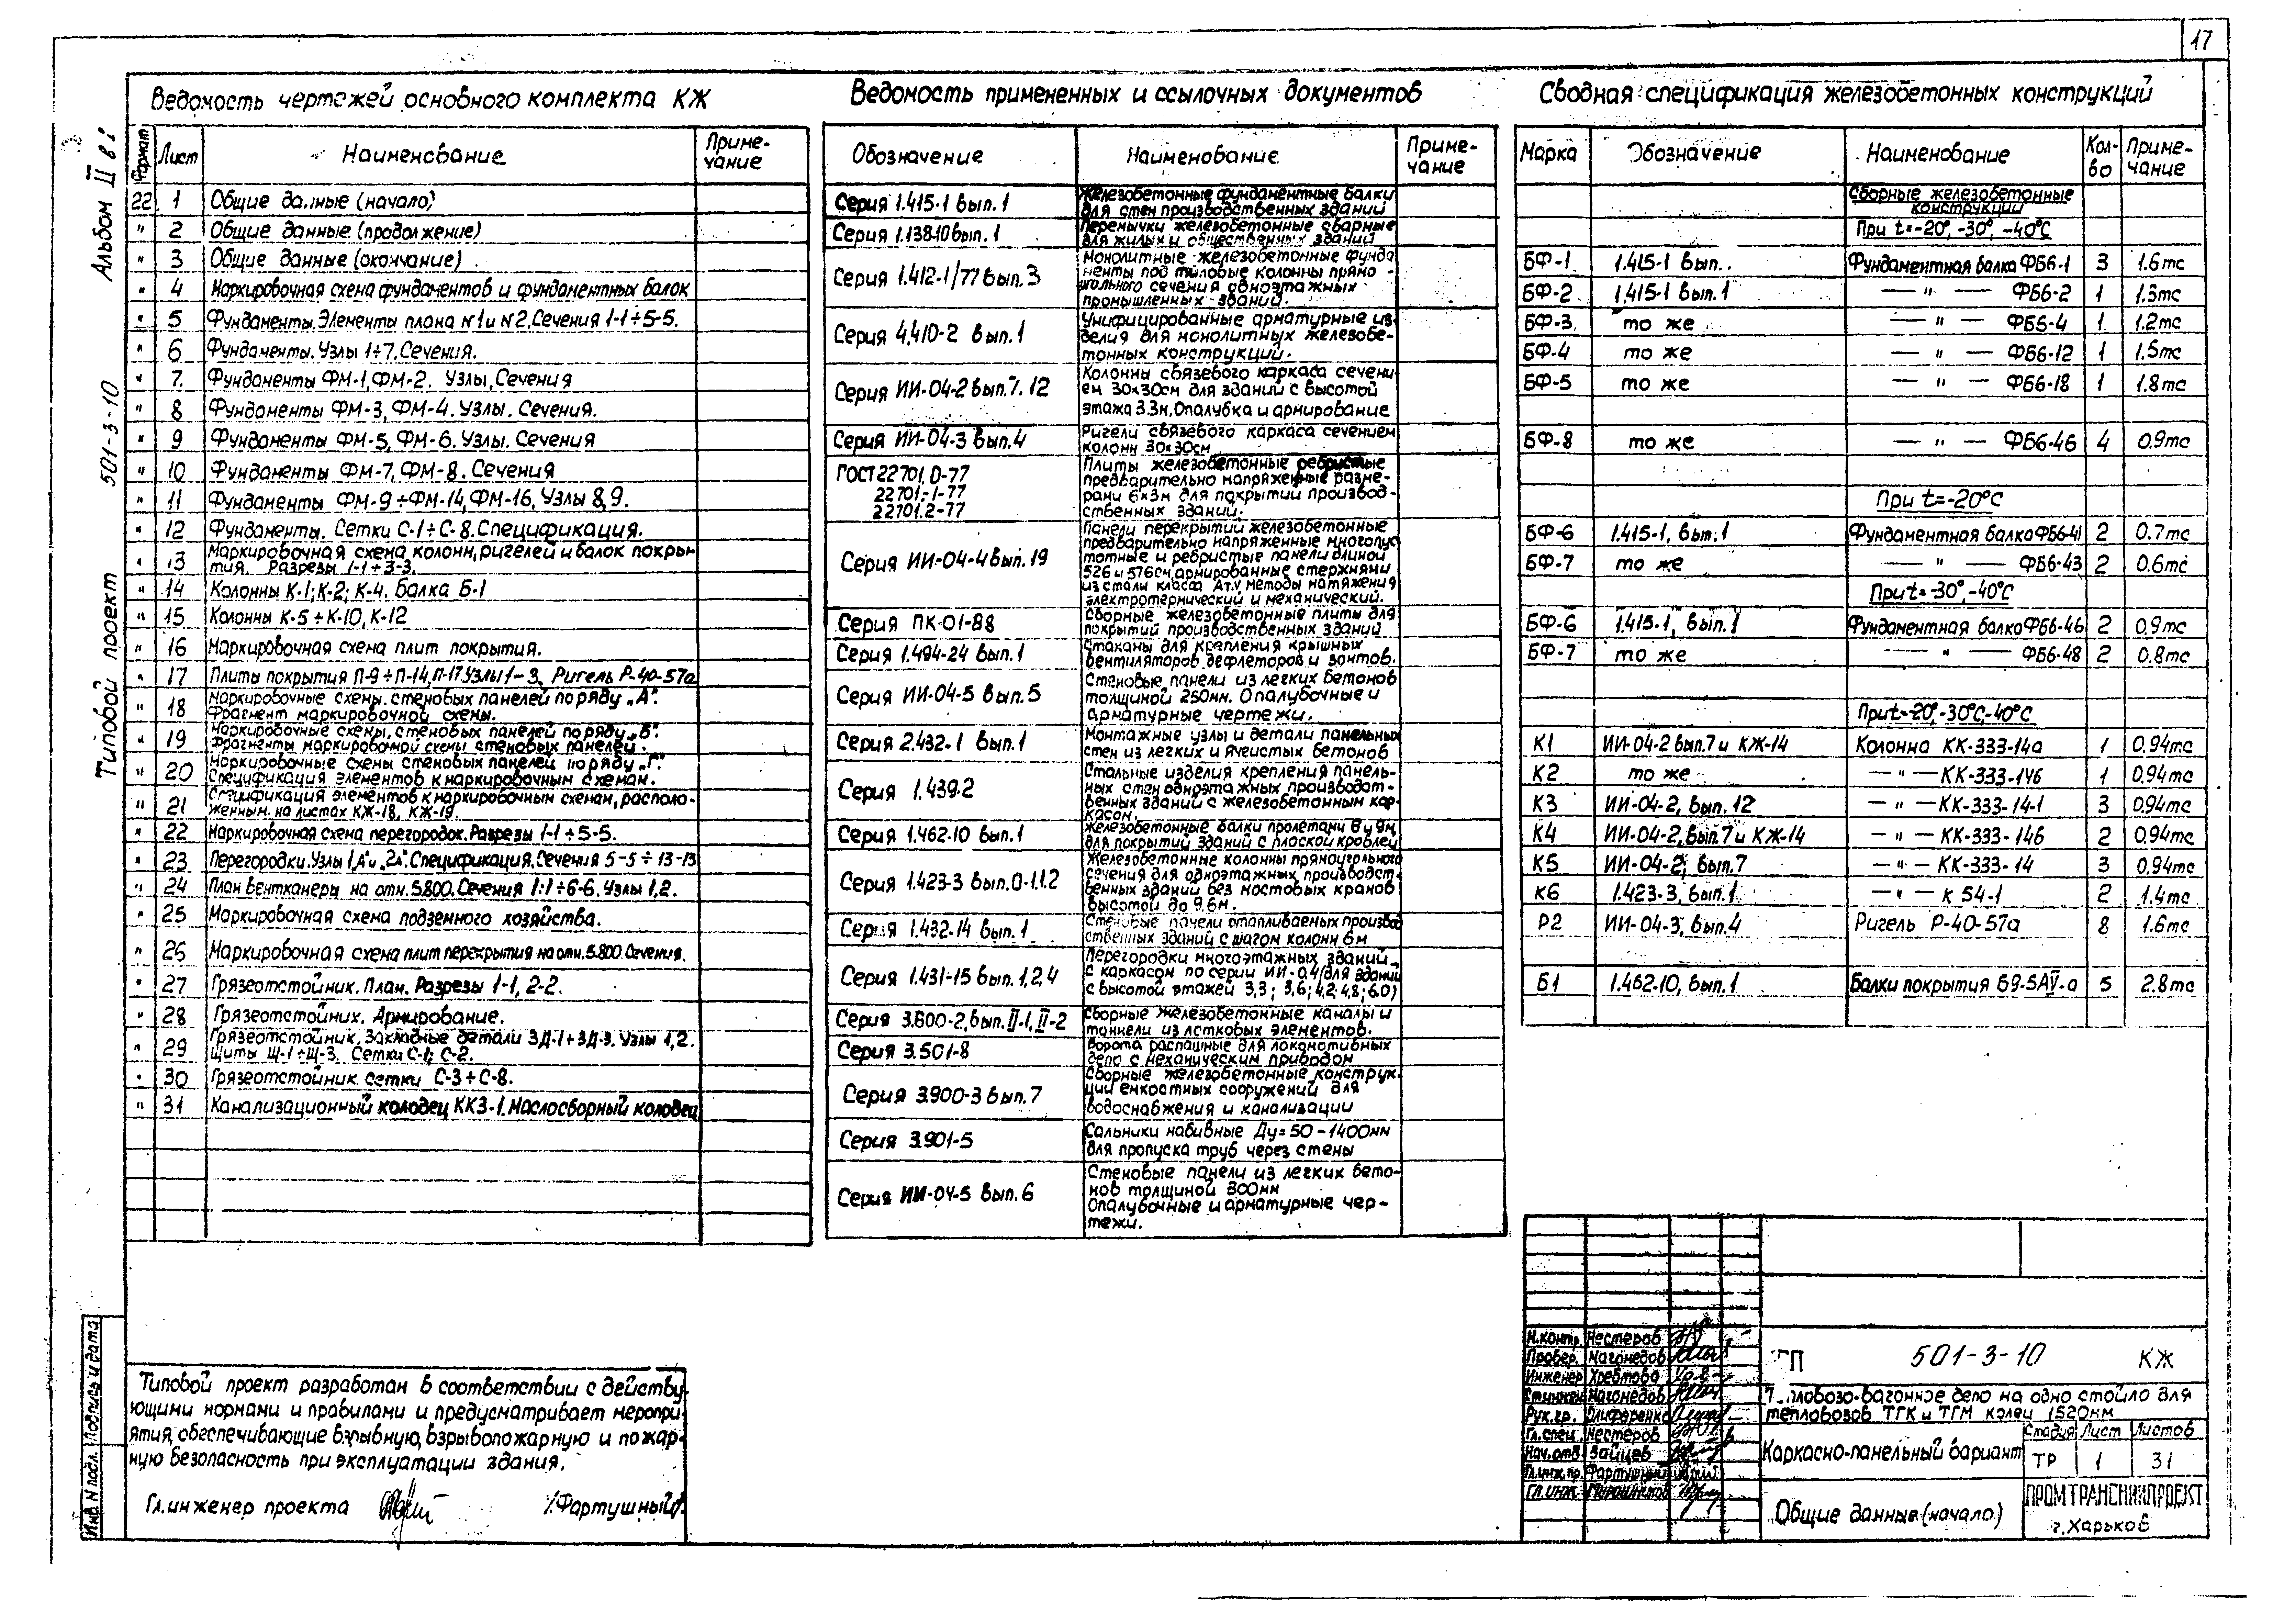 17
Альбом II
501-3-10
Типовой проект
Ведомость чертежей основного комплекта КЖ
Формат Лист Наименование Приме-
чание
22 1 Общие данные (начало)
" 2 Общие данные (продолжение)
" 3 Общие данные (окончание)
" 4 Маркировочная схема фундаментов и фундаментных балок
" 5 Фундаменты. Элементы плана N1 и N2. Сечения 1-1÷5-5.
" 6 Фундаменты. Узлы 1÷7. Сечения.
" 7. Фундаменты ФМ-1, ФМ-2. Узлы, Сечения
" 8 Фундаменты ФМ-3, ФМ-4. Узлы. Сечения.
" 9 Фундаменты ФМ-5, ФМ-6. Узлы. Сечения
" 10 Фундаменты ФМ-7, ФМ-8. Сечения
" 11 Фундаменты ФМ-9÷ФМ-14, ФМ-16, Узлы 8, 9.
" 12 Фундаменты. Сетки С-1÷С-8. Спецификация.
" 13 Маркировочная схема колонн, ригелей и балок покры-
тия. Разрезы 1-1÷3-3.
" 14 Колонны К-1; К-2; К-4. Балка Б-1
" 15 Колонны К-5÷К-10, К-12
" 16 Маркировочная схема плит покрытия.
" 17 Плиты покрытия П-9÷П-14, П-17 Узлы 1-3. Ригель Р-40-57а
" 18 Маркировочные схемы. стеновых панелей по ряду „А".
Фрагмент маркировочной схемы.
" 19 Маркировочные схемы. стеновых панелей по ряду „Б".
Фрагменты маркировочной схемы стеновых панелей.
" 20 Маркировочные схемы стеновых панелей по ряду „Г".
Спецификация элементов к маркировочным схемам.
" 21 Спецификация элементов к маркировочным схемам, располо-
женным на листах КЖ-18, КЖ-19.
" 22 Маркировочная схема перегородок. Разрезы 1-1÷5-5.
" 23 Перегородки. Узлы 1„А" и „2А". Спецификация. Сечения 5-5÷13-13
" 24 План венткамеры на отм. 5.800. Сечения 1-1÷6-6. Узлы 1, 2.
" 25 Маркировочная схема подземного хозяйства.
" 26 Маркировочная схема плит перекрытия на отм. 5.800. Сечения.
" 27 Грязеотстойник. План. Разрезы 1-1, 2-2.
" 28 Грязеотстойник. Армирование.
" 29 Грязеотстойник. Закладные детали ЗД-1÷ЗД-3. Узлы 1, 2.
Щиты Щ-1÷Щ-3. Сетки С-1; С-2.
" 30 Грязеотстойник. сетки С-3÷С-8.
" 31 Канализационный колодец ККЗ-1. Маслосборный колодец
Ведомость примененных и ссылочных документов
Обозначение Наименование Приме-
чание
Серия 1.415-1 вып. 1 Железобетонные фундаментные балки
для стен производственных зданий
Серия 1.138-10 вып. 1 Перемычки железобетонные сварные
для жилых и общественных зданий
Серия 1.412-1/77 вып. 3 Монолитные железобетонные фунда
менты под типовые колонны прямо-
угольного сечения одноэтажных
промышленных зданий.
Серия 4.410-2 вып. 1 Унифицированные арматурные из-
делия для монолитных железобе-
тонных конструкций.
Серия ИИ-04-2 вып. 7. 12 Колонны связевого каркаса сечени-
ем 30×30см для зданий с высотой
этажа 3.3м. Опалубка и армирование
Серия ИИ-04-3 вып. 4 Ригели связевого каркаса сечением
колонн 30×30см
ГОСТ 22701. 0-77
22701.-1-77
22701.2-77
Плиты железобетонные ребристые
предварительно напряженные разме-
рами 6×3м для покрытий производ-
ственных зданий.
Серия ИИ-04-4 вып. 19 Панели перекрытий железобетонные
предварительно напряженные многопус
тотные и ребристые панели длиной
526 и 576см, армированные стержнями
из стали класса Ат.V методы натяжения
электротермический и механический.
Серия ПК-01-88 Сборные железобетонные плиты для
покрытий производственных зданий
Серия 1.494-24 вып. 1 Стаканы для крепления крышных
вентиляторов, дефлеторов и зонтов.
Серия ИИ-04-5 вып. 5 Стеновые панели из легких бетонов
толщиной 250мм. Опалубочные и
арматурные чертежи.
Серия 2.432-1 вып. 1 Монтажные узлы и детали панельных
стен из легких и ячеистых бетонов
Серия 1.439-2 Стальные изделия крепления панель-
ных стен одноэтажных производст-
венных зданий с железобетонным кар-
касом.
Серия 1.462-10 вып. 1 Железобетонные балки пролетами 6 и 9м
для покрытий зданий с плоской кровлей
Серия 1.423-3 вып. 0-1.1.2 Железобетонные колонны прямоугольного
сечения для одноэтажных производст-
венных зданий без мостовых кранов
высотой до 9.6м.
Серия 1.432-14 вып. 1 Стеновые панели отапливаемых произвód
ственных зданий с шагом колонн 6м
Серия 1.431-15 вып. 1, 2, 4 Перегородки многоэтажных зданий
с каркасом по серии ИИ-04 (для зданий
с высотой этажей 3,3; 3,6; 4,2; 4,8; 6.0)
Серия 3.600-2, вып. II-1, II-2 Сборные железобетонные каналы и
тоннели из лотковых элементов.
Серия 3.501-8 Ворота распашные для локомотивных
депо с механическим приводом
Серия 3.900-3 вып. 7 Сборные железобетонные конструк-
ции емкостных сооружений для
водоснабжения и канализации
Серия 3.901-5 Сальники набивные Ду=50-1400мм
для пропуска труб через стены
Серия ИИ-04-5 вып. 6 Стеновые панели из легких бето-
нов толщиной 300мм
Опалубочные и арматурные чер-
тежи.
Сводная спецификация железобетонных конструкций
Марка Обозначение Наименование Кол-
во Приме-
чание
Сборные железобетонные
конструкции
При t=-20°, -30°, -40°С
БФ-1 1.415-1 вып. Фундаментная балка ФБ6-1 3 1.6тс
БФ-2 1.415-1 вып. 1 — " — ФБ6-2 1 1.3тс
БФ-3 то же — " — ФБ5-4 1 1.2тс
БФ-4 то же — " — ФБ6-12 1 1.5тс
БФ-5 то же — " — ФБ6-18 1 1.8тс
БФ-8 то же — " — ФБ6-46 4 0.9тс
При t=-20°С
БФ-6 1.415-1, вып. 1 Фундаментная балка ФБ6-41 2 0.7тс
БФ-7 то же — " — ФБ6-43 2 0.6тс
При t=-30°, -40°С
БФ-6 1.415-1, вып. 1 Фундаментная балка ФБ6-46 2 0,9тс
БФ-7 то же — " — ФБ6-48 2 0.8тс
При t=-20°, -30°С, -40°С
К1 ИИ-04-2 вып. 7 и КЖ-14 Колонна КК-333-14а 1 0.94тс
К2 то же — " — КК-333-14б 1 0,94тс
К3 ИИ-04-2, вып. 12 — " — КК-333-14-1 3 0.94тс
К4 ИИ-04-2, вып. 7 и КЖ-14 — " — КК-333-14б 2 0.94тс
К5 ИИ-04-2; вып. 7 — " — КК-333-14 3 0.94тс
К6 1.423-3, вып. 1 — " — К 54-1 2 1.4тс
Р2 ИИ-04-3, вып. 4 Ригель Р-40-57а 8 1.6тс
Б1 1.462-10, вып. 1 Балки покрытия Б9-5АV-а 5 2.8тс
Типовой проект разработан в соответствии с действу-
ющими нормами и правилами и предусматривает меропри-
ятия, обеспечивающие взрывную, взрывопожарную и пожар-
ную безопасность при эксплуатации здания.
Гл. инженер проекта /Фартушный/
Инв. N подл. Подпись и дата
Н. контр. Нестеров
Провер. Магомедов
Инженер Хребтова
Ст. инжен Магомедов
Рук. гр. Олиференко
Гл. спец. Нестеров
Нач. отд. Зайцев
Гл. инж. пр. Фартушный
Гл. инж.
ТП 501-3-10 КЖ
Тепловозо-вагонное депо на одно стойло для
тепловозов ТГК и ТГМ колеи 1520мм
Каркасно-панельный вариант
Стадия Лист Листов
ТР 1 31
Общие данные (начало)
ПРОМТРАНСНИИПРОЕКТ
г. Харьков